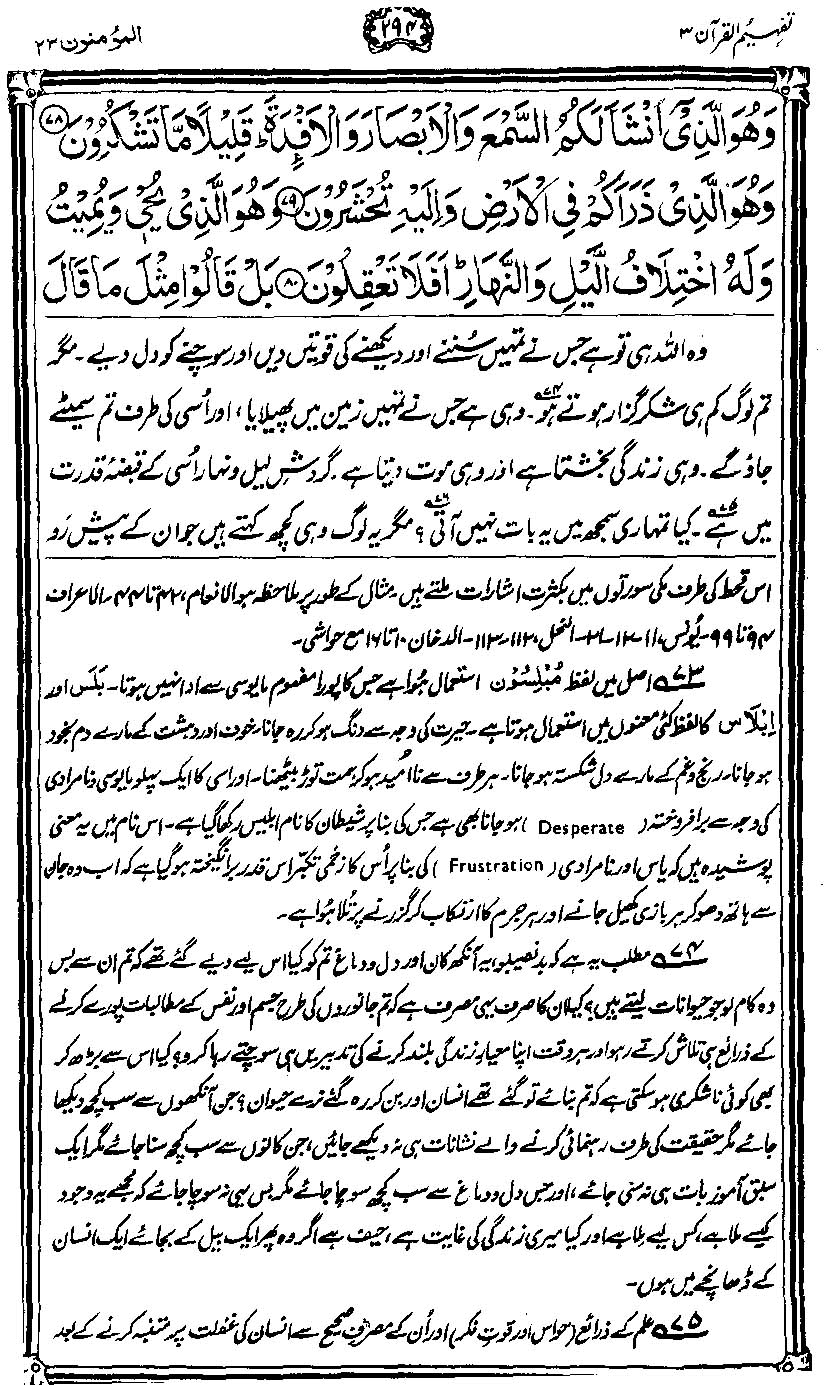 تفہیم القرآن ۳
۲۹۴
المؤمنون ۲۳
وَهُوَ الَّذِیْۤ اَنْشَاَ لَكُمُ السَّمْعَ وَالْاَبْصَارَ وَالْاَفْـِٕدَةَ ؕ قَلِیْلًا مَّا تَشْكُرُوْنَ ۷۸
وَهُوَ الَّذِیْ ذَرَاَكُمْ فِی الْاَرْضِ وَاِلَیْهِ تُحْشَرُوْنَ ۷۹ وَهُوَ الَّذِیْ یُحْیٖ وَیُمِیْتُ
وَلَهُ اخْتِلَافُ الَّیْلِ وَالنَّهَارِ ؕ اَفَلَا تَعْقِلُوْنَ ۸۰ بَلْ قَالُوْا مِثْلَ مَا قَالَ
وہ اللہ ہی تو ہے جس نے تمہیں سُننے اور دیکھنے کی قوتیں دیں اور سوچنے کو دل دیے۔ مگر
تم لوگ کم ہی شکر گزار ہوتے ہو۷۴۔ وہی ہے جس نے تمہیں زمین میں پھیلایا، اور اُسی کی طرف تم سمیٹے
جاؤ گے۔ وہی زندگی بخشتا ہے اور وہی موت دیتا ہے۔ گردشِ لیل و نہار اُسی کے قبضۂ قدرت
میں ہے۷۵۔ کیا تمہاری سمجھ میں یہ بات نہیں آتی۷۶؟ مگر یہ لوگ وہی کچھ کہتے ہیں جو ان کے پیش رَو
اس قحط کی طرف مکی سورتوں میں بکثرت اشارات ملتے ہیں۔ مثال کے طور پر ملاحظہ ہو الانعام، ۴۲ تا ۴۴۔ الاعراف
۹۴ تا ۹۹۔ یونس، ۱۱۔۱۲۔۲۱۔ النحل، ۱۱۲۔۱۱۳۔ الدخان ۱۰ تا ۱۶ مع حواشی۔
۷۳ اصل میں لفظ مُبْلِسُوْن استعمال ہُوا ہے جس کا پورا مفہوم مایوسی سے ادا نہیں ہوتا۔ بَلَس اور
اِبْلَاس کا لفظ کئی معنوں میں استعمال ہوتا ہے۔ حیرت کی وجہ سے دنگ ہو کر رہ جانا۔ خوف اور دہشت کے مارے دم بخود
ہو جانا۔ رنج و غم کے مارے دل شکستہ ہو جانا۔ ہر طرف سے نا اُمید ہو کر ہمت توڑ بیٹھنا۔ اور اسی کا ایک پہلو مایوسی و نامرادی
کی وجہ سے برافروختہ (Desperate) ہو جانا بھی ہے جس کی بنا پر شیطان کا نام ابلیس رکھا گیا ہے۔ اس نام میں یہ معنی
پوشیدہ ہیں کہ یاس اور نامرادی (Frustration) کی بنا پر اُس کا زخمی تکبّر اس قدر برانگیختہ ہو گیا ہے کہ اب وہ جان
سے ہاتھ دھو کر ہر بازی کھیل جانے اور ہر جرم کا ارتکاب کر گزرنے پر تُلا ہُوا ہے۔
۷۴ مطلب یہ ہے کہ بدنصیبو، یہ آنکھ کان اور دل و دماغ تم کو کیا اس لیے دیے گئے تھے کہ تم ان سے بس
وہ کام لو جو حیوانات لیتے ہیں؟ کیا ان کا صرف یہی مصرف ہے کہ تم جانوروں کی طرح جسم اور نفس کے مطالبات پورے کرنے
کے ذرائع ہی تلاش کرتے رہو اور ہر وقت اپنا معیارِ زندگی بلند کرنے کی تدبیریں ہی سوچتے رہا کرو؟ کیا اس سے بڑھ کر
بھی کوئی ناشکری ہو سکتی ہے کہ تم بنائے تو گئے تھے انسان اور بن کر رہ گئے نرے حیوان؟ جن آنکھوں سے سب کچھ دیکھا
جائے مگر حقیقت کی طرف رہنمائی کرنے والے نشانات ہی نہ دیکھے جائیں، جن کانوں سے سب کچھ سنا جائے مگر ایک
سبق آموز بات ہی نہ سنی جائے، اور جس دل و دماغ سے سب کچھ سوچا جائے مگر بس یہی نہ سوچا جائے کہ مجھے یہ وجود
کیسے ملا ہے، کس لیے مِلا ہے اور کیا میری زندگی کی غایت ہے، حیف ہے اگر وہ پھر ایک بیل کے بجائے ایک انسان
کے ڈھانچے میں ہوں۔
۷۵ علم کے ذرائع (حواس اور قوتِ فکر) اور اُن کے مصرفِ صحیح سے انسان کی غفلت پر متنبّہ کرنے کے بعد